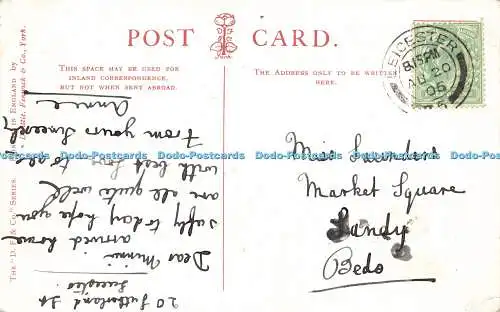 POST CARD.
THIS SPACE MAY BE USED FOR
INLAND CORRESPONDENCE,
BUT NOT WHEN SENT ABROAD.
THE ADDRESS ONLY TO BE WRITTEN
HERE.
LEICESTER
8.15PM
20
05
Miss Saunders
Market Square
Sandy
Beds
20 Sutherland St
Leicester
Dear Minnie
arrived home
safly to day hope you
are all quite well
with best love to all
From yours Sincerely
Annie
THE "D. F. & Co." SERIES.
IN ENGLAND BY
& Co., York.
Dodo-Postcards Dodo-Postcards Dodo-Postcards Dodo-Postcards Dodo-Postcards